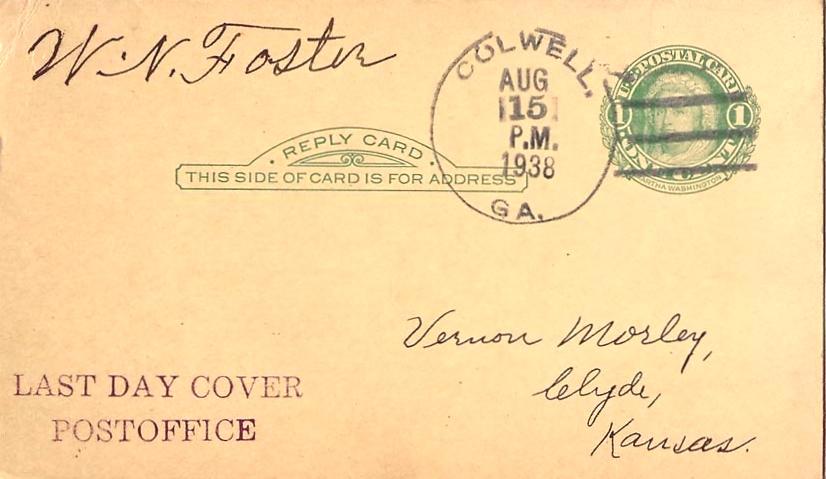 W. N. Foster
COLWELL,
AUG
15
P.M.
1938
GA.
U.S. POSTAL CARD
1 1
MARTHA WASHINGTON
REPLY CARD
THIS SIDE OF CARD IS FOR ADDRESS
Vernon Morley,
Clyde,
Kansas.
LAST DAY COVER
POSTOFFICE